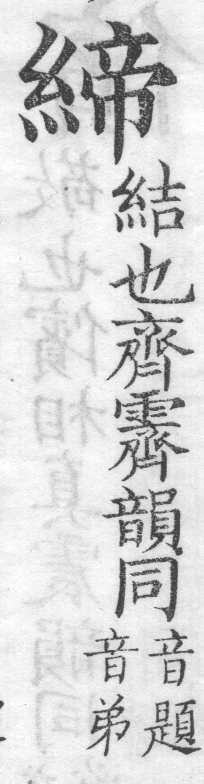 締
結也齊霽韻同
音題
音弟